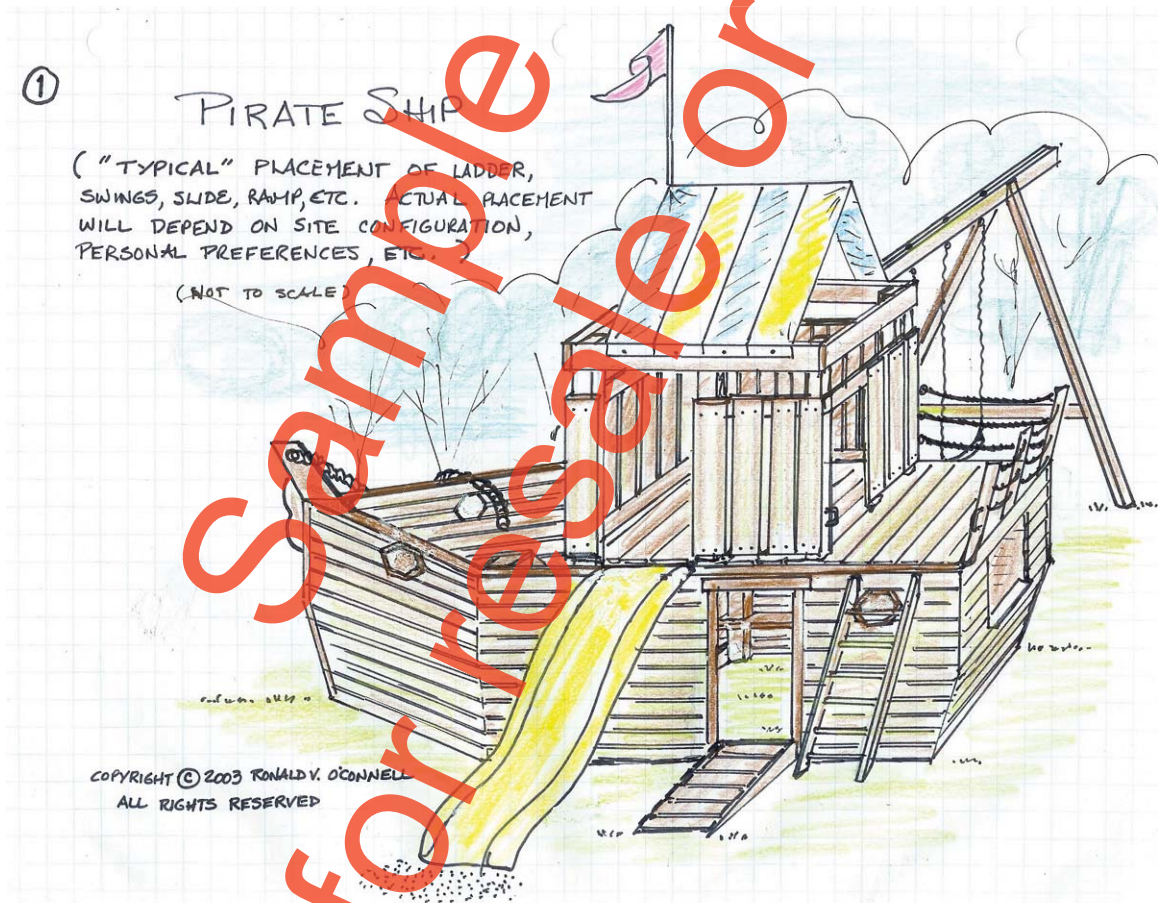 1
PIRATE SHIP
("TYPICAL" PLACEMENT OF LADDER,
SWINGS, SLIDE, RAMP, ETC. ACTUAL PLACEMENT
WILL DEPEND ON SITE CONFIGURATION,
PERSONAL PREFERENCES, ETC.)
(NOT TO SCALE)
Sample
for resale or
COPYRIGHT © 2003 RONALD V. O'CONNELL
ALL RIGHTS RESERVED